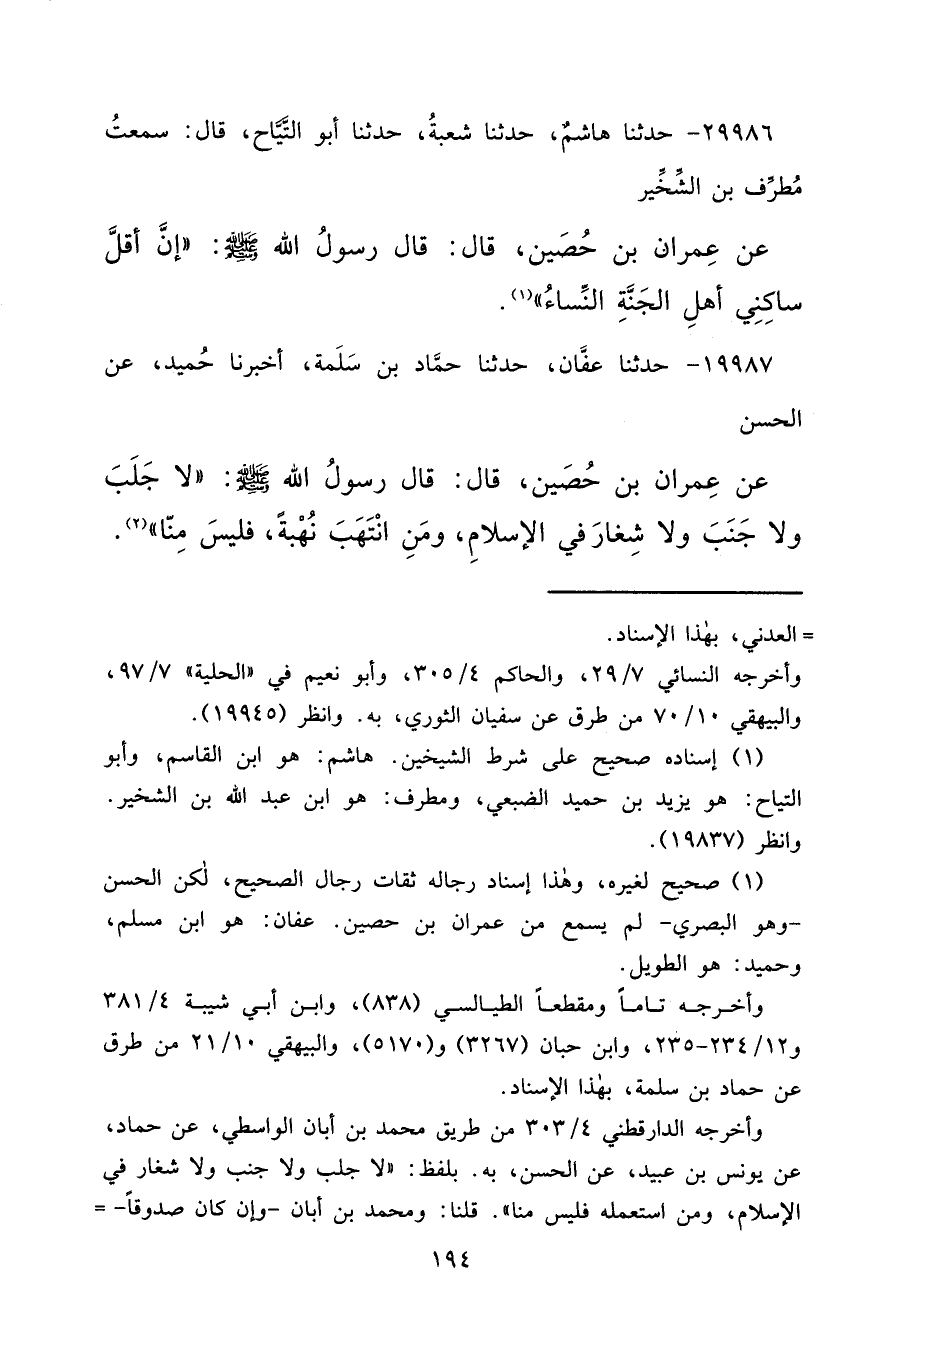 ٢٩٩٨٦- حدثنا هاشمٌ، حدثنا شعبةُ، حدثنا أبو التَّيَّاح، قال: سمعتُ
مُطرِّف بن الشِّخِّير
عن عِمران بن حُصَين، قال: قال رسولُ الله ﷺ: «إنَّ أقلَّ
ساكِنِي أهلِ الجَنَّةِ النِّساءُ»(١).
١٩٩٨٧- حدثنا عفَّان، حدثنا حمَّاد بن سَلَمة، أخبرنا حُميد، عن
الحسن
عن عِمران بن حُصَين، قال: قال رسولُ الله ﷺ: «لا جَلَبَ
ولا جَنَبَ ولا شِغارَ في الإسلامِ، ومَنِ انْتَهَبَ نُهْبةً، فليسَ مِنّا»(٢).
= العدني، بهٰذا الإسناد.
وأخرجه النسائي ٢٩/٧، والحاكم ٣٠٥/٤، وأبو نعيم في «الحلية» ٩٧/٧،
والبيهقي ٧٠/١٠ من طرق عن سفيان الثوري، به. وانظر (١٩٩٤٥).
(١) إسناده صحيح على شرط الشيخين. هاشم: هو ابن القاسم، وأبو
التياح: هو يزيد بن حميد الضبعي، ومطرف: هو ابن عبد الله بن الشخير.
وانظر (١٩٨٣٧).
(١) صحيح لغيره، وهٰذا إسناد رجاله ثقات رجال الصحيح، لٰكن الحسن
-وهو البصري- لم يسمع من عمران بن حصين. عفان: هو ابن مسلم،
وحميد: هو الطويل.
وأخرجه تاماً ومقطعاً الطيالسي (٨٣٨)، وابن أبي شيبة ٣٨١/٤
و٢٣٤/١٢-٢٣٥، وابن حبان (٣٢٦٧) و(٥١٧٠)، والبيهقي ٢١/١٠ من طرق
عن حماد بن سلمة، بهٰذا الإسناد.
وأخرجه الدارقطني ٣٠٣/٤ من طريق محمد بن أبان الواسطي، عن حماد،
عن يونس بن عبيد، عن الحسن، به. بلفظ: «لا جلب ولا جنب ولا شغار في
الإسلام، ومن استعمله فليس منا». قلنا: ومحمد بن أبان -وإن كان صدوقاً- =
١٩٤